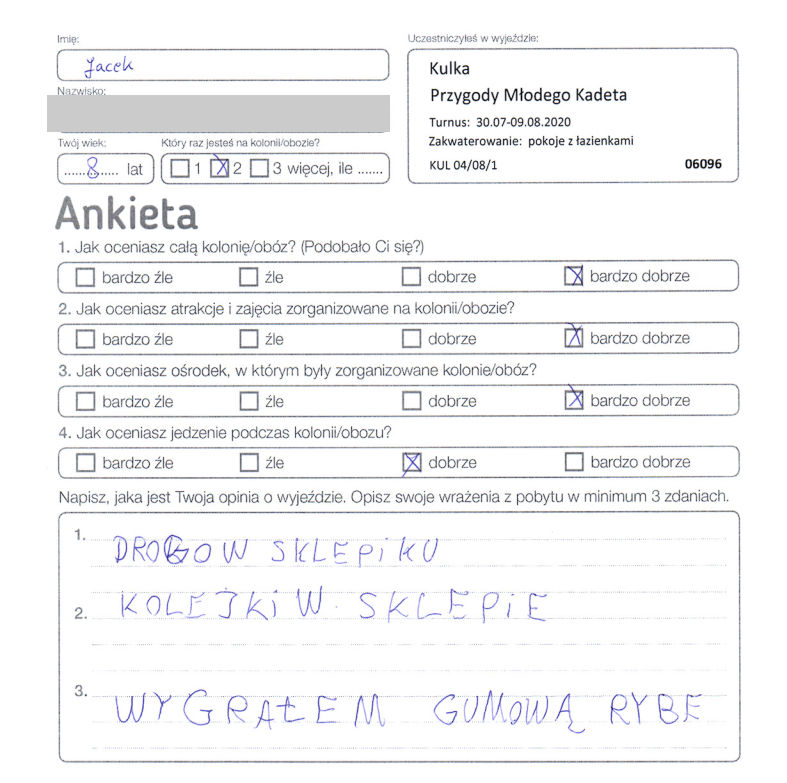 Imię:
Jacek
Nazwisko:
Twój wiek:
8 lat
Który raz jesteś na kolonii/obozie?
1 2 3 więcej, ile .......
Uczestniczyłeś w wyjeździe:
Kulka
Przygody Młodego Kadeta
Turnus: 30.07-09.08.2020
Zakwaterowanie: pokoje z łazienkami
KUL 04/08/1 06096
Ankieta
1. Jak oceniasz całą kolonię/obóz? (Podobało Ci się?)
bardzo źle źle dobrze bardzo dobrze
2. Jak oceniasz atrakcje i zajęcia zorganizowane na kolonii/obozie?
bardzo źle źle dobrze bardzo dobrze
3. Jak oceniasz ośrodek, w którym były zorganizowane kolonie/obóz?
bardzo źle źle dobrze bardzo dobrze
4. Jak oceniasz jedzenie podczas kolonii/obozu?
bardzo źle źle dobrze bardzo dobrze
Napisz, jaka jest Twoja opinia o wyjeździe. Opisz swoje wrażenia z pobytu w minimum 3 zdaniach.
1. DROGO W SKLEPiKU
2. KOLEJKi W SKLEPiE
3. WYGRAŁEM GUMOWĄ RYBE